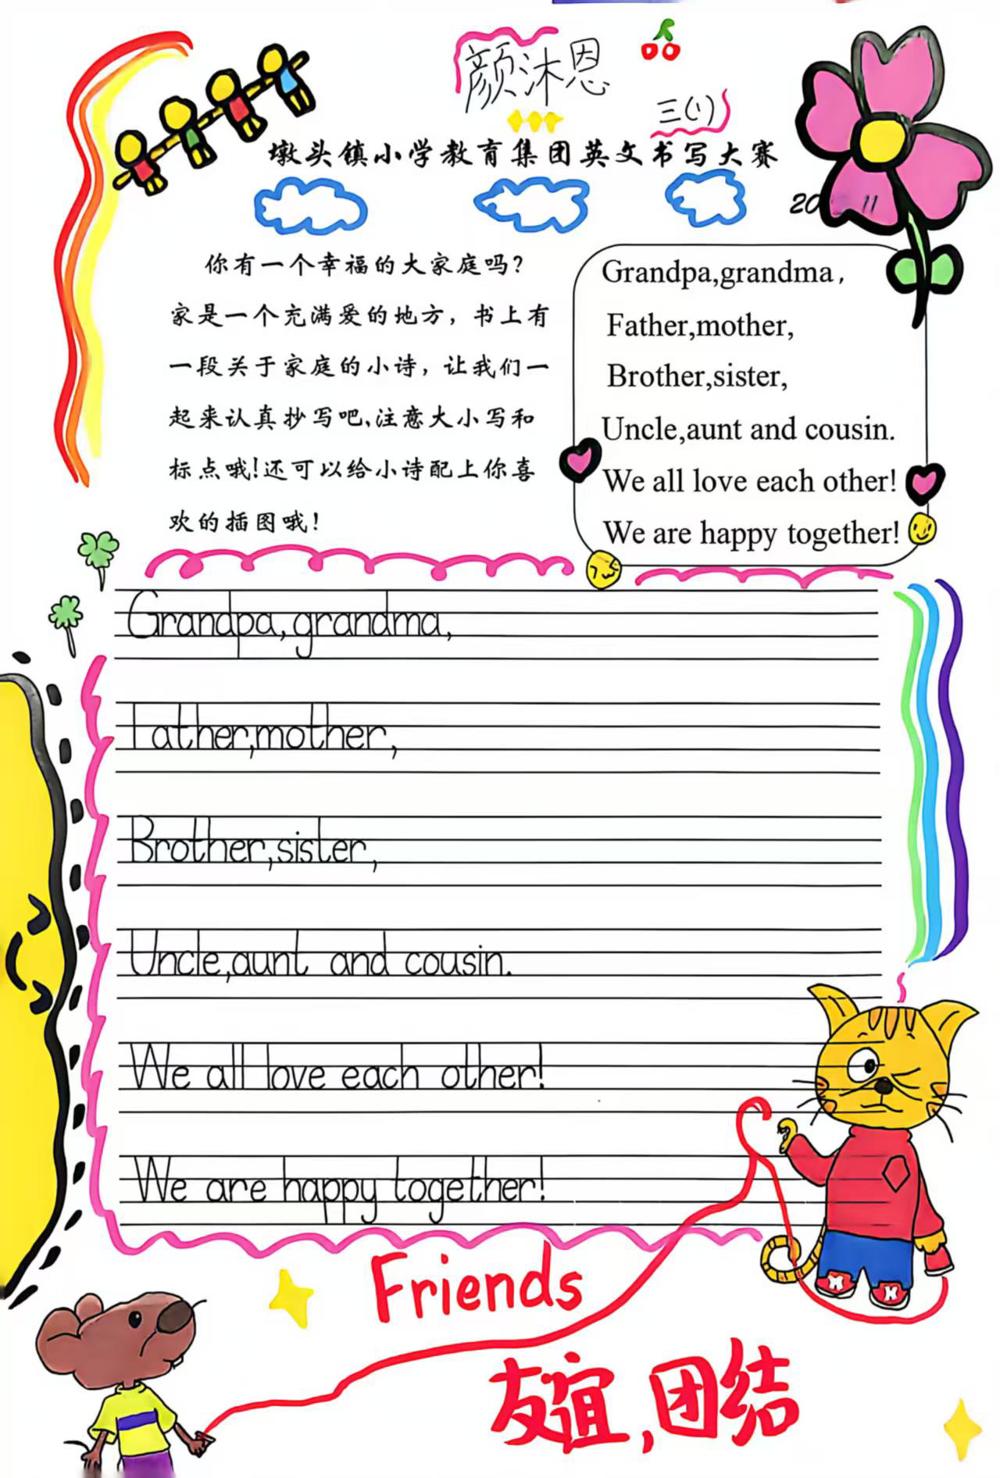 颜沐恩
三(1)
墩头镇小学教育集团英文书写大赛
20 11
你有一个幸福的大家庭吗?
家是一个充满爱的地方，书上有
一段关于家庭的小诗，让我们一
起来认真抄写吧,注意大小写和
标点哦!还可以给小诗配上你喜
欢的插图哦!
Grandpa,grandma,
Father,mother,
Brother,sister,
Uncle,aunt and cousin.
We all love each other!
We are happy together!
Grandpa,grandma,
Father,mother,
Brother,sister,
Uncle,aunt and cousin.
We all love each other!
We are happy together!
Friends
友谊,团结